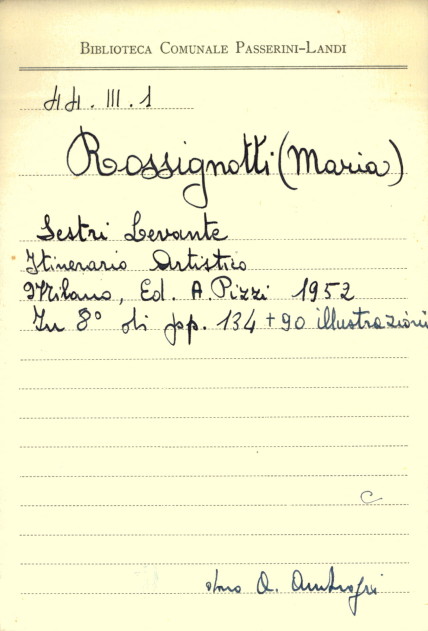 BIBLIOTECA COMUNALE PASSERINI-LANDI
44. III. 1
Rossignotti (Maria)
Sestri Levante
Itinerario Artistico
Milano, Ed. A. Pizzi 1952
In 8° di pp. 134 + 90 illustrazioni
C
dono A.